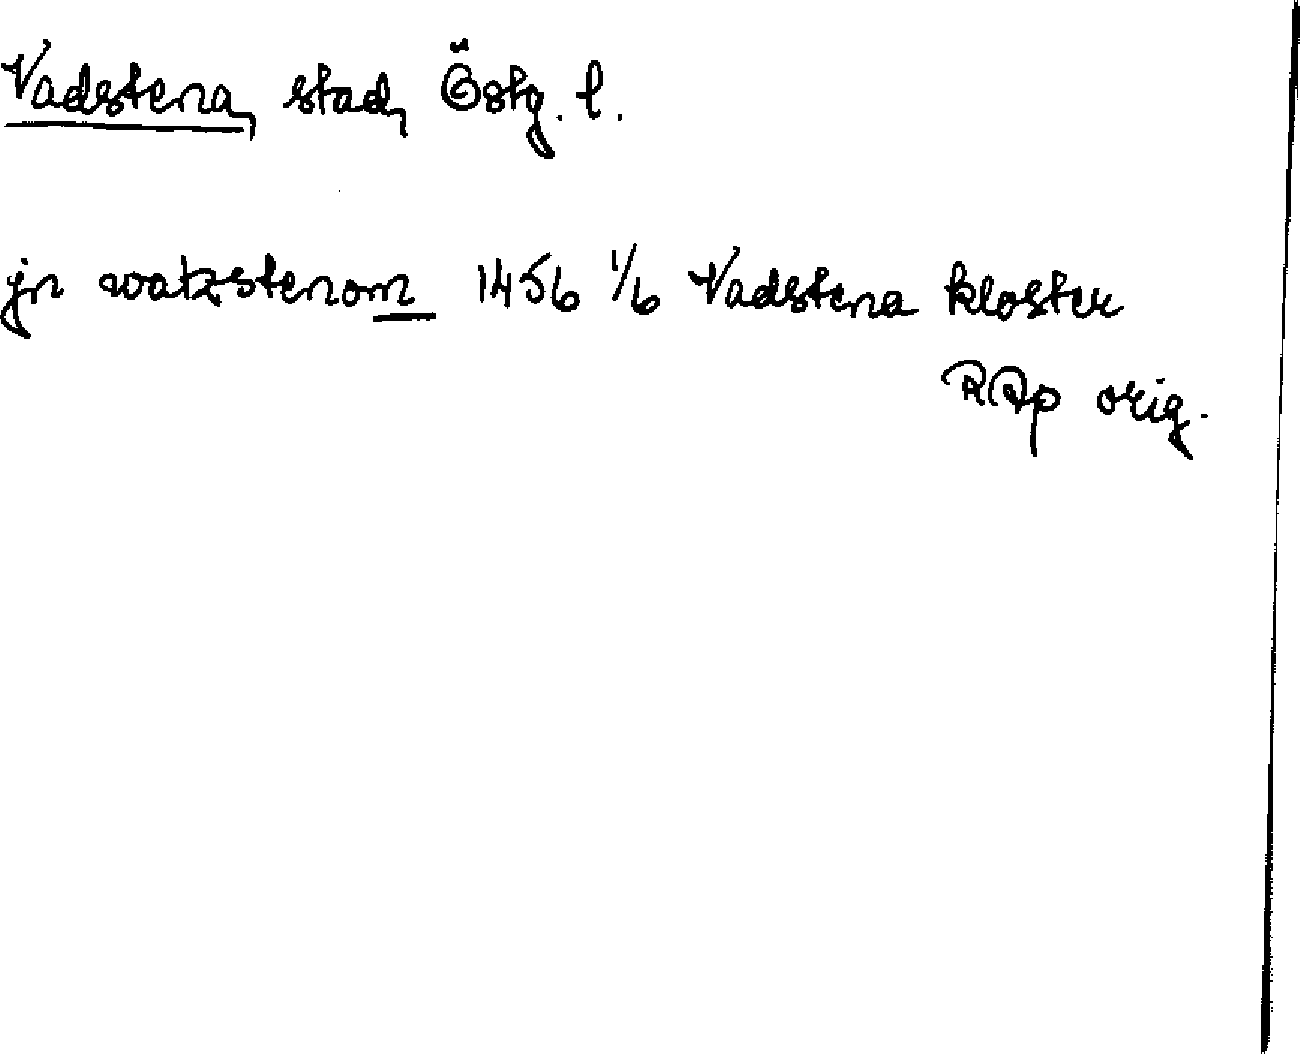 Vadstena, stad, Östg. l.
jn watzstenom 1456 1/6 Vadstena kloster
RAp orig.